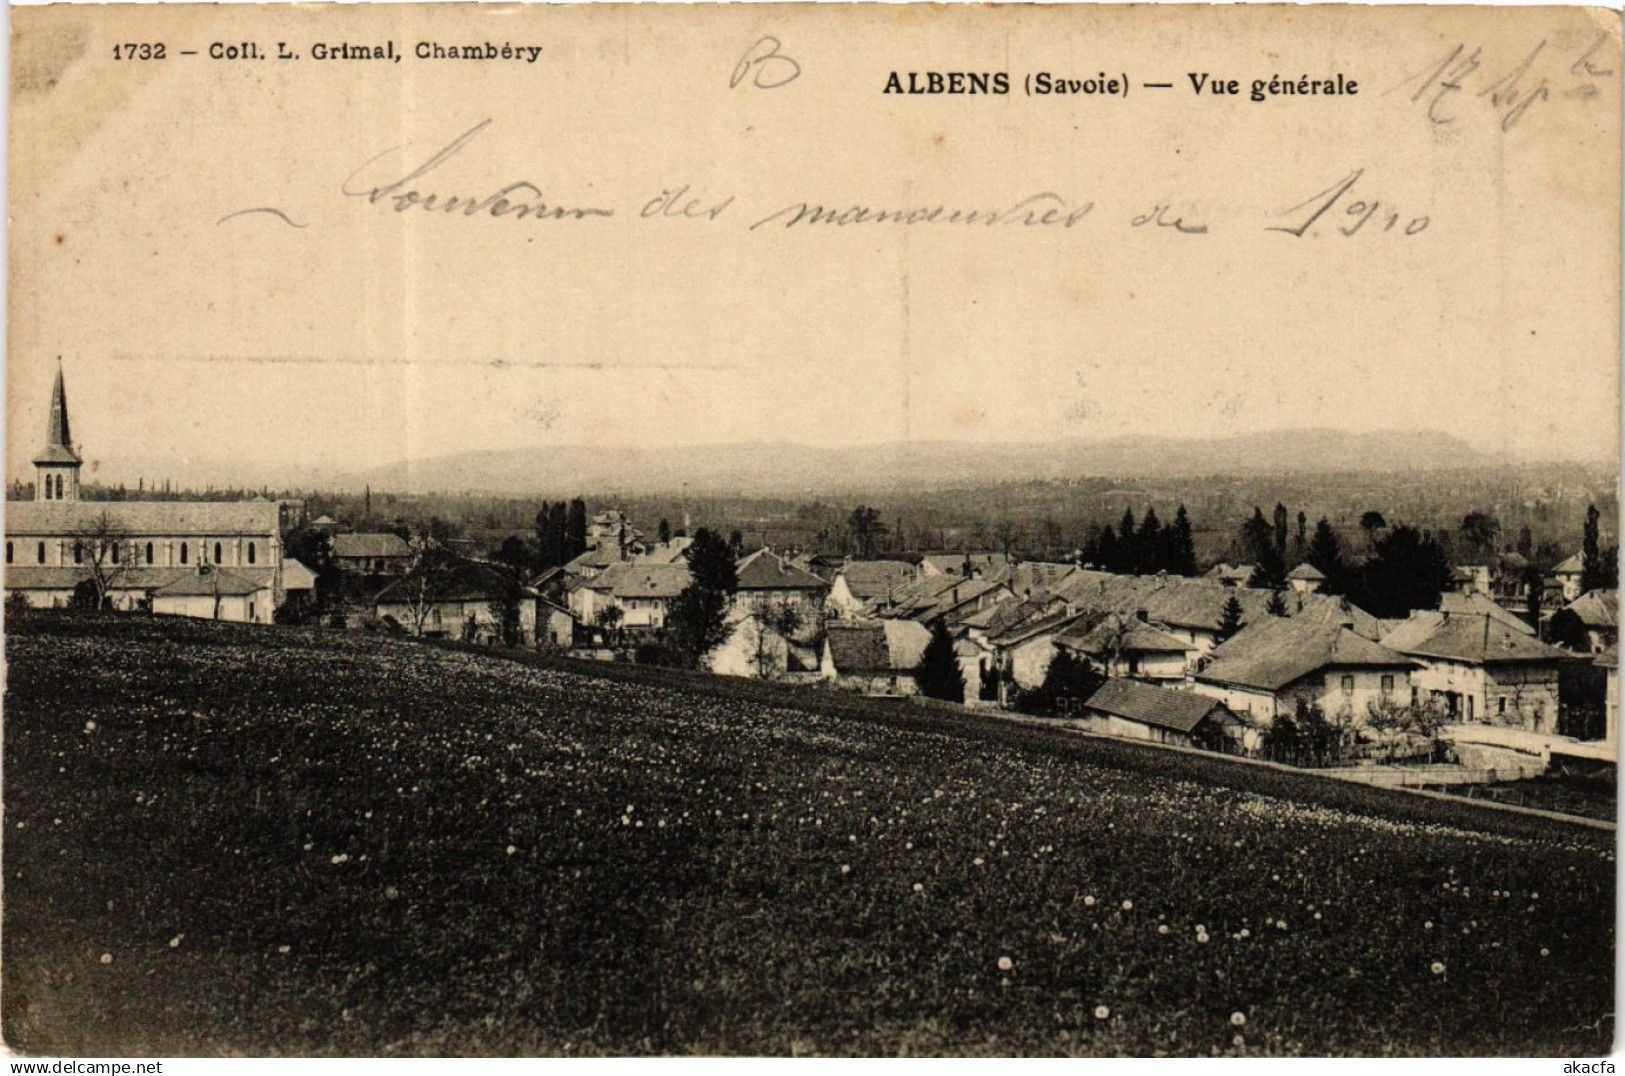 1732 — Coll. L. Grimal, Chambéry
B
ALBENS (Savoie) — Vue générale
17 Sep bre
Souvenir des manœuvres de 1910
delcampe.net
akacfa